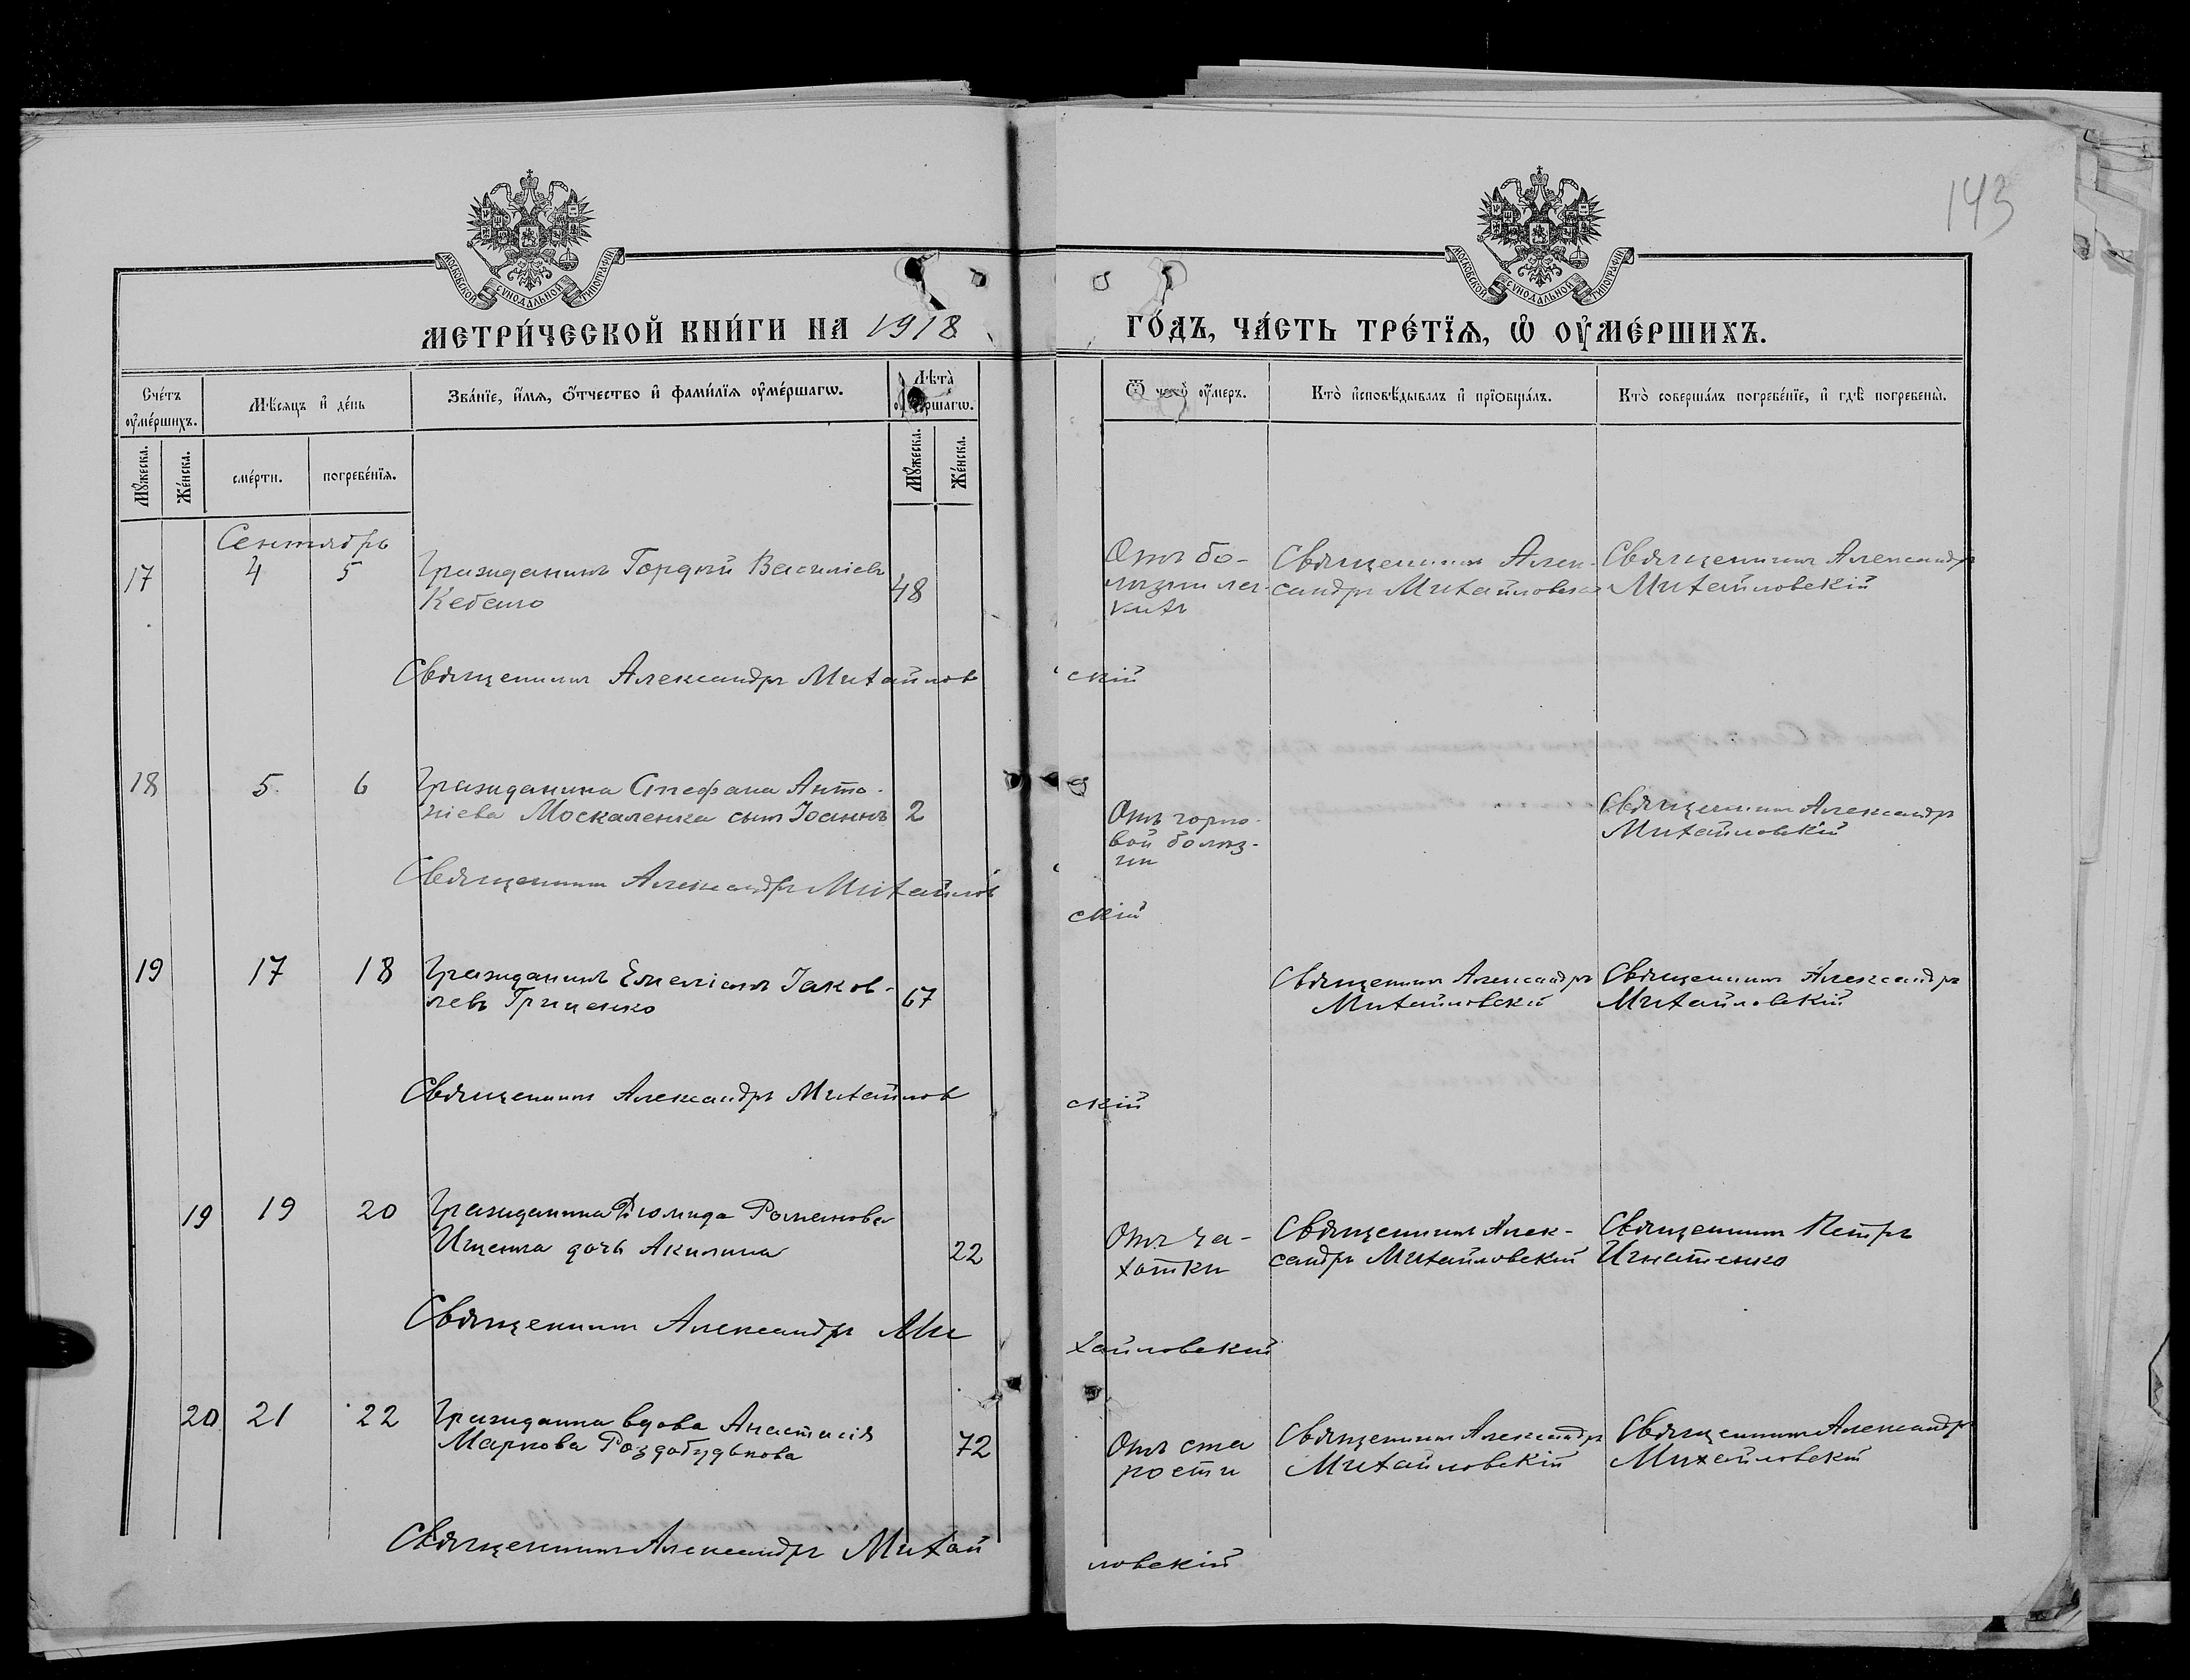 143
МОСКОВСКОЙ СѴНОДАЛЬНОЙ ТИПОГРАФІИ
МОСКОВСКОЙ СѴНОДАЛЬНОЙ ТИПОГРАФІИ
МЕТРИ́ЧЕСКОЙ КНИ́ГИ НА 1918 ГО́ДЪ, ЧА́СТЬ ТРЕ́ТЇѦ, Ѡ҆ ОУ҆МЕ́РШИХЪ.
Сче́тъ оу҆ме́ршихъ.
Мѣ́сяцъ и҆ де́нь
Зва́нїе, и҆́мѧ, ѻ҆́тчество и҆ фами́лїѧ оу҆ме́ршагѡ.
Лѣ́та оу҆ме́ршагѡ.
Ѿ чегѡ̀ оу҆́меръ.
Кто̀ и҆сповѣ́дывалъ и҆ прїѡбща́лъ.
Кто̀ соверша́лъ погребе́нїе, и҆ гдѣ̀ погребены̀.
Мꙋ́жеска.
Же́нска.
сме́рти.
погребе́нїѧ.
Мꙋ́жеска.
Же́нска.
Сентябрь
17 4 5 Гражданинъ Гордій Василіевъ 48
Кебало
Отъ бо-
лѣзни лег-
кихъ
Священникъ Алек-
сандръ Михайловскій
Священникъ Александръ
Михайловскій
Священникъ Александръ Михайловскій
18 5 6 Гражданина Стефана Анто-
ніева Москаленка сынъ Іоаннъ 2
Отъ горло-
вой болѣз-
ни
Священникъ Александръ
Михайловскій
Священникъ Александръ Михайловскій
19 17 18 Гражданинъ Емеліанъ Іаков-
левъ Гриценко 67
Священникъ Александръ
Михайловскій
Священникъ Александръ
Михайловскій
Священникъ Александръ Михайловскій
19 19 20 Гражданина Діомида Романова
Ищенка дочь Акилина 22
Отъ ча-
хотки
Священникъ Алек-
сандръ Михайловскій
Священникъ Петръ
Игнатенко
Священникъ Александръ Михайловскій
20 21 22 Гражданка вдова Анастасія
Маркова Роздобудькова 72
Отъ ста
рости
Священникъ Александръ
Михайловскій
Священникъ Александръ
Михайловскій
Священникъ Александръ Михайловскій